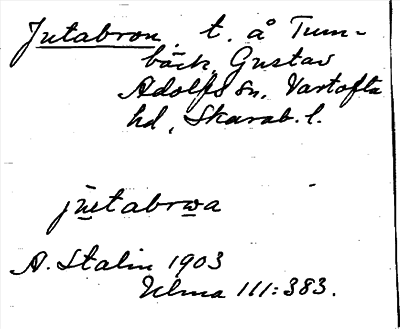 Jutabron, t. å Tum-
bäck, Gustav
Adolfs sn. Vartofta
hd, Skarab. l.
jutabrwa
A. Stalin 1903
Ulma 111:383.